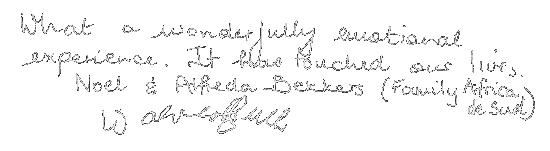 What a wonderfully emotional
experience. It has touched our lives.
Noel & Alfreda Bekkers (Family Africa
de Sud)